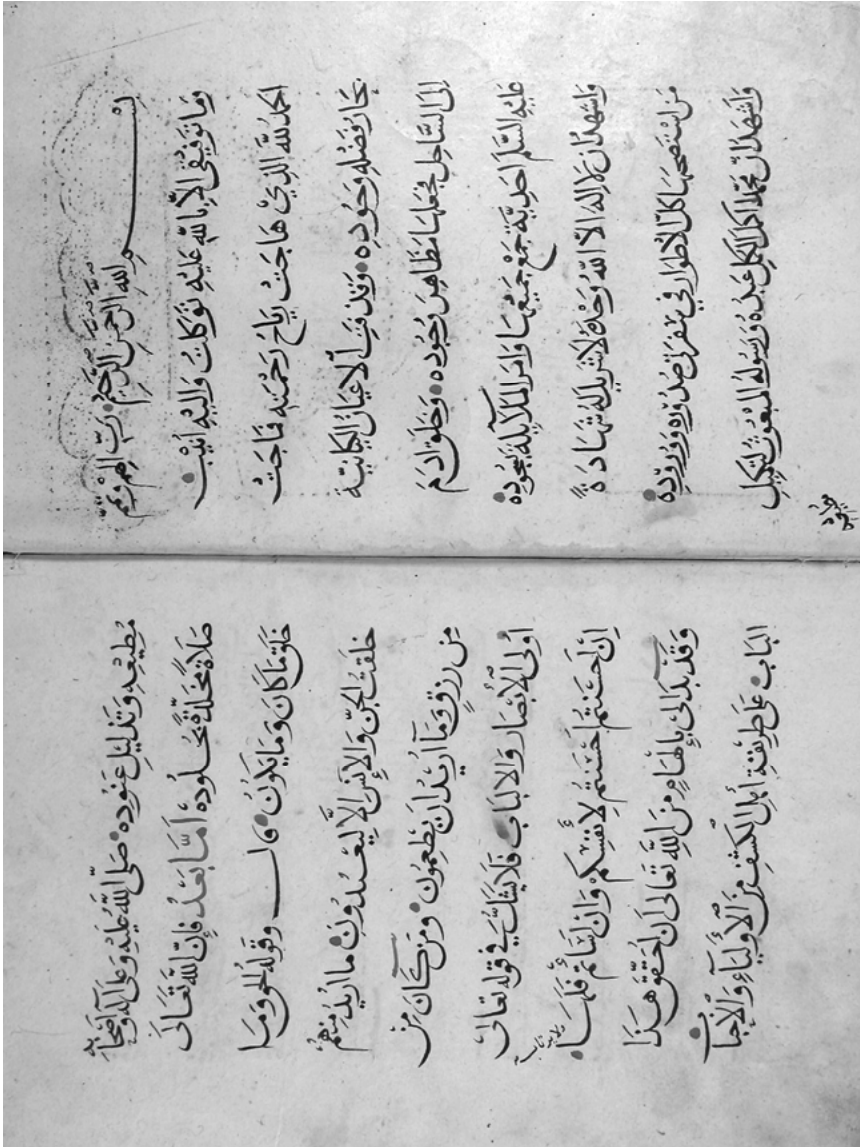 بسم الله الرحمن الرحيم رب الهم وتمم
وما توفيقي الا بالله عليه توكلت واليه انيب
الحمد لله الذي هاجت رياح رحمته فماجت
بحار فضله وجوده وقذفت الاعيان الكيانية
الى الساحل فجعلها مظاهر وجوده وخلق ادم
عليه السلم احدية جمع جميعها وامر الملايكة بسجوده
واشهد ان لا اله الا الله وحده لا شريك له شهادة
من استصحبها كل الاطوار في سفرتي صدوره ووروده
واشهد ان محمدا اكمل الكمل عبده ورسوله المبعوث لتكميل
مطيعه وتذليل عنوده صلى الله عليه وعلى آله واصحابه
صلاة مخلدة بخلوده اما بعد فان الله تعالى
خلق ما كان وما يكون قال وقوله الحق وما
خلقت الجن والانس الا ليعبدون ما اريد منهم
من رزق وما اريد ان يطعمون ومن كان من
اولى الابصار والالباب فلا يشك في قوله تعالى
ان احسنتم احسنتم لانفسكم وان اسأتم فلها
وقد بدا لي بالهام من الله تعالى ان احقق هذا
الباب على طريقة اهل الكشف من الاولياء والاحباب